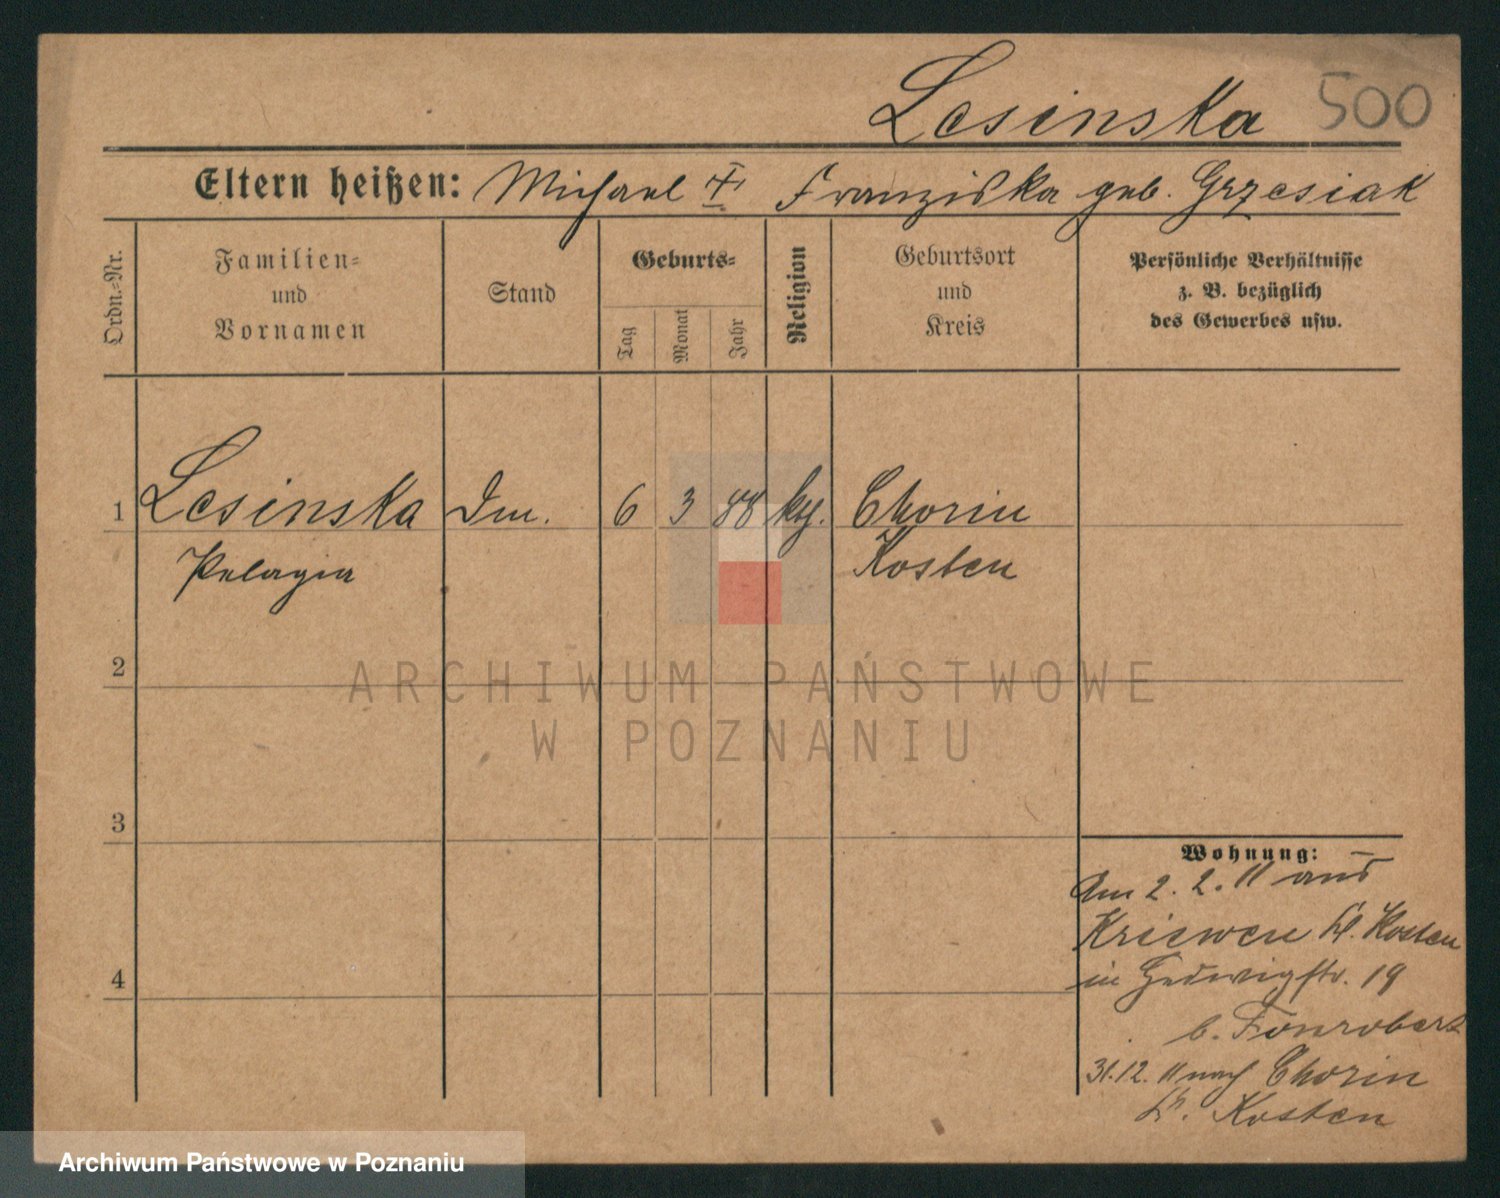 Lesinska 500
Eltern heißen: Michael † Franziska geb. Grzesiak
Ordn.-Nr.
Familien-
und
Vornamen
Stand
Geburts-
Tag
Monat
Jahr
Religion
Geburtsort
und
Kreis
Persönliche Verhältnisse
z. B. bezüglich
des Gewerbes usw.
1 Lesinska 6 3 88 Chorin
Pelagia Kosten
2
3
4
Wohnung:
Am 2. 2. 11 aus
Kriewen Kr. Kosten
in Hedwigstr. 19
b. Fonrobert
31.12. 11 nach Chorin
Kr. Kosten
ARCHIWUM PAŃSTWOWE
W POZNANIU
Archiwum Państwowe w Poznaniu